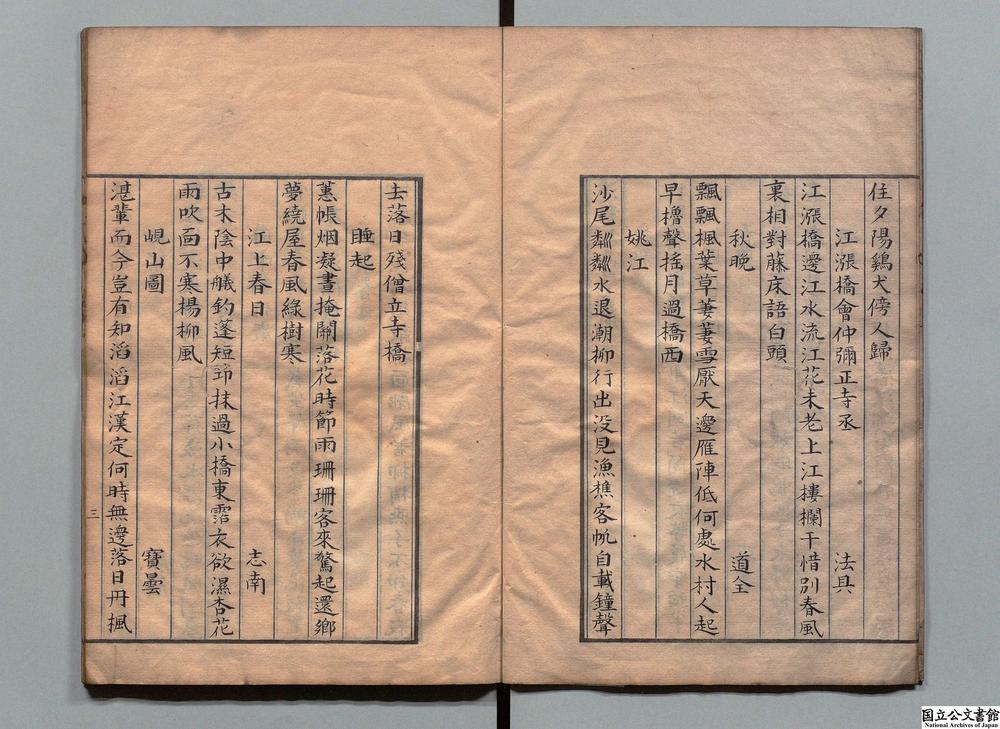 住夕陽鷄犬傍人歸
江漲橋會仲彌正寺丞 法具
江漲橋邊江水流江花未老上江樓欄干惜別春風
裏相對藤床語白頭
秋晚 道全
飄飄楓葉草萋萋雪厭天邊雁陣低何處水村人起
早櫓聲揺月過橋西
姚江
沙尾粼粼水退潮柳行出没見漁樵客帆自載鐘聲
去落日殘僧立寺橋
睡起
蕙帳烟凝晝掩關落花時節雨珊珊客來驚起還鄉
夢繞屋春風綠樹寒
江上春日 志南
古木陰中艤釣蓬短笻抹過小橋東霑衣欲濕杏花
雨吹靣不寒楊柳風
峴山圖 寶曇
湛輩而今豈有知滔滔江漢定何時無邊落日丹楓
三
国立公文書館
National Archives of Japan